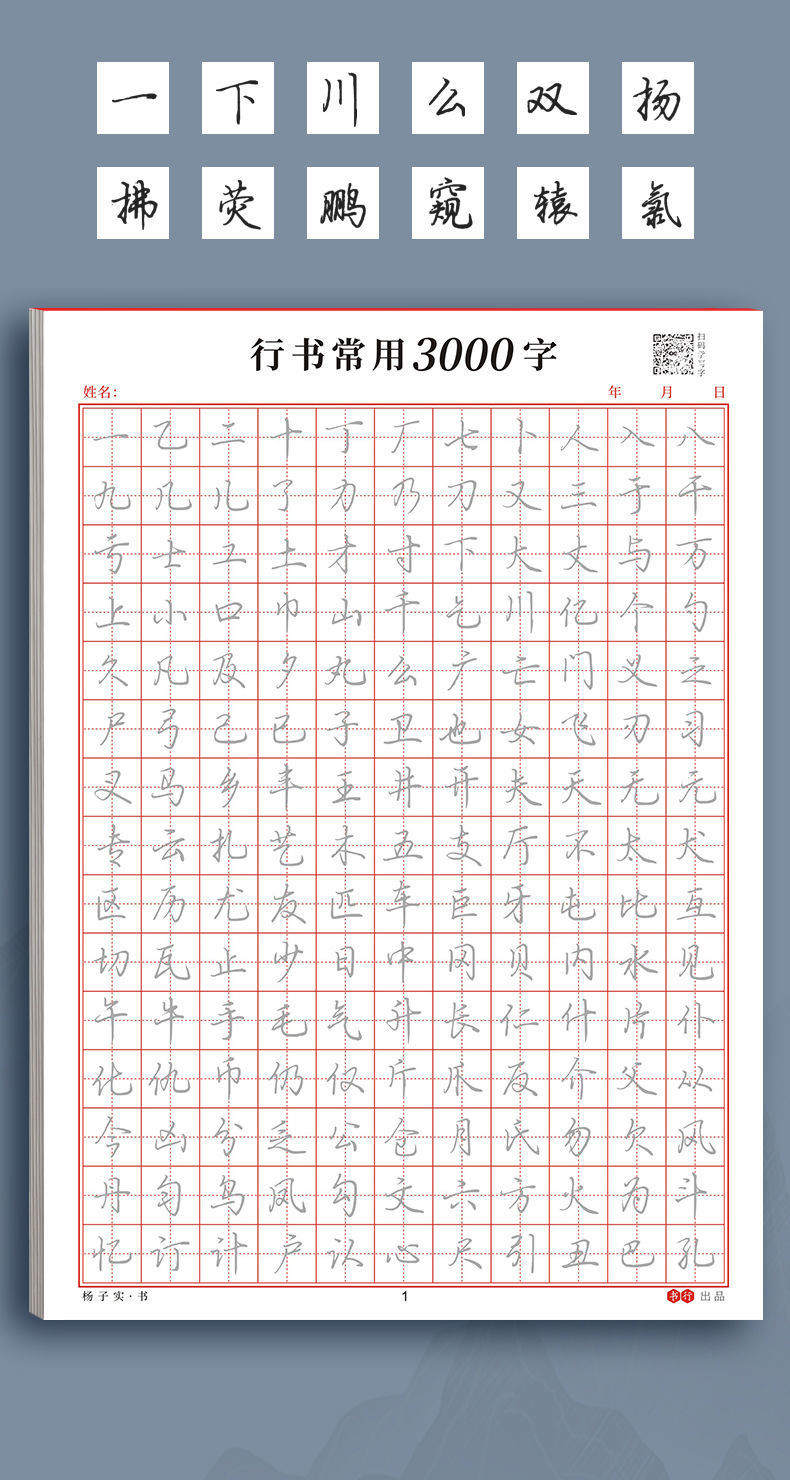 一 下 川 么 双 扬
拂 荧 鹏 窥 辕 氯
行书常用3000字
扫码学写字
姓名： 年 月 日
一 乙 二 十 丁 厂 七 卜 人 入 八
九 几 儿 了 力 乃 刀 又 三 于 干
亏 士 工 土 才 寸 下 大 丈 与 万
上 小 口 巾 山 千 乞 川 亿 个 勺
久 凡 及 夕 丸 么 广 亡 门 义 之
尸 弓 己 已 子 卫 也 女 飞 刃 习
叉 马 乡 丰 王 井 开 夫 天 无 元
专 云 扎 艺 木 五 支 厅 不 太 犬
区 历 尤 友 匹 车 巨 牙 屯 比 互
切 瓦 止 少 日 中 冈 贝 内 水 见
午 牛 手 毛 气 升 长 仁 什 片 仆
化 仇 币 仍 仅 斤 爪 反 介 父 从
今 凶 分 乏 公 仓 月 氏 勿 欠 风
丹 匀 乌 凤 勾 文 六 方 火 为 斗
忆 订 计 户 认 心 尺 引 丑 巴 孔
杨子实·书 1 书行 出品